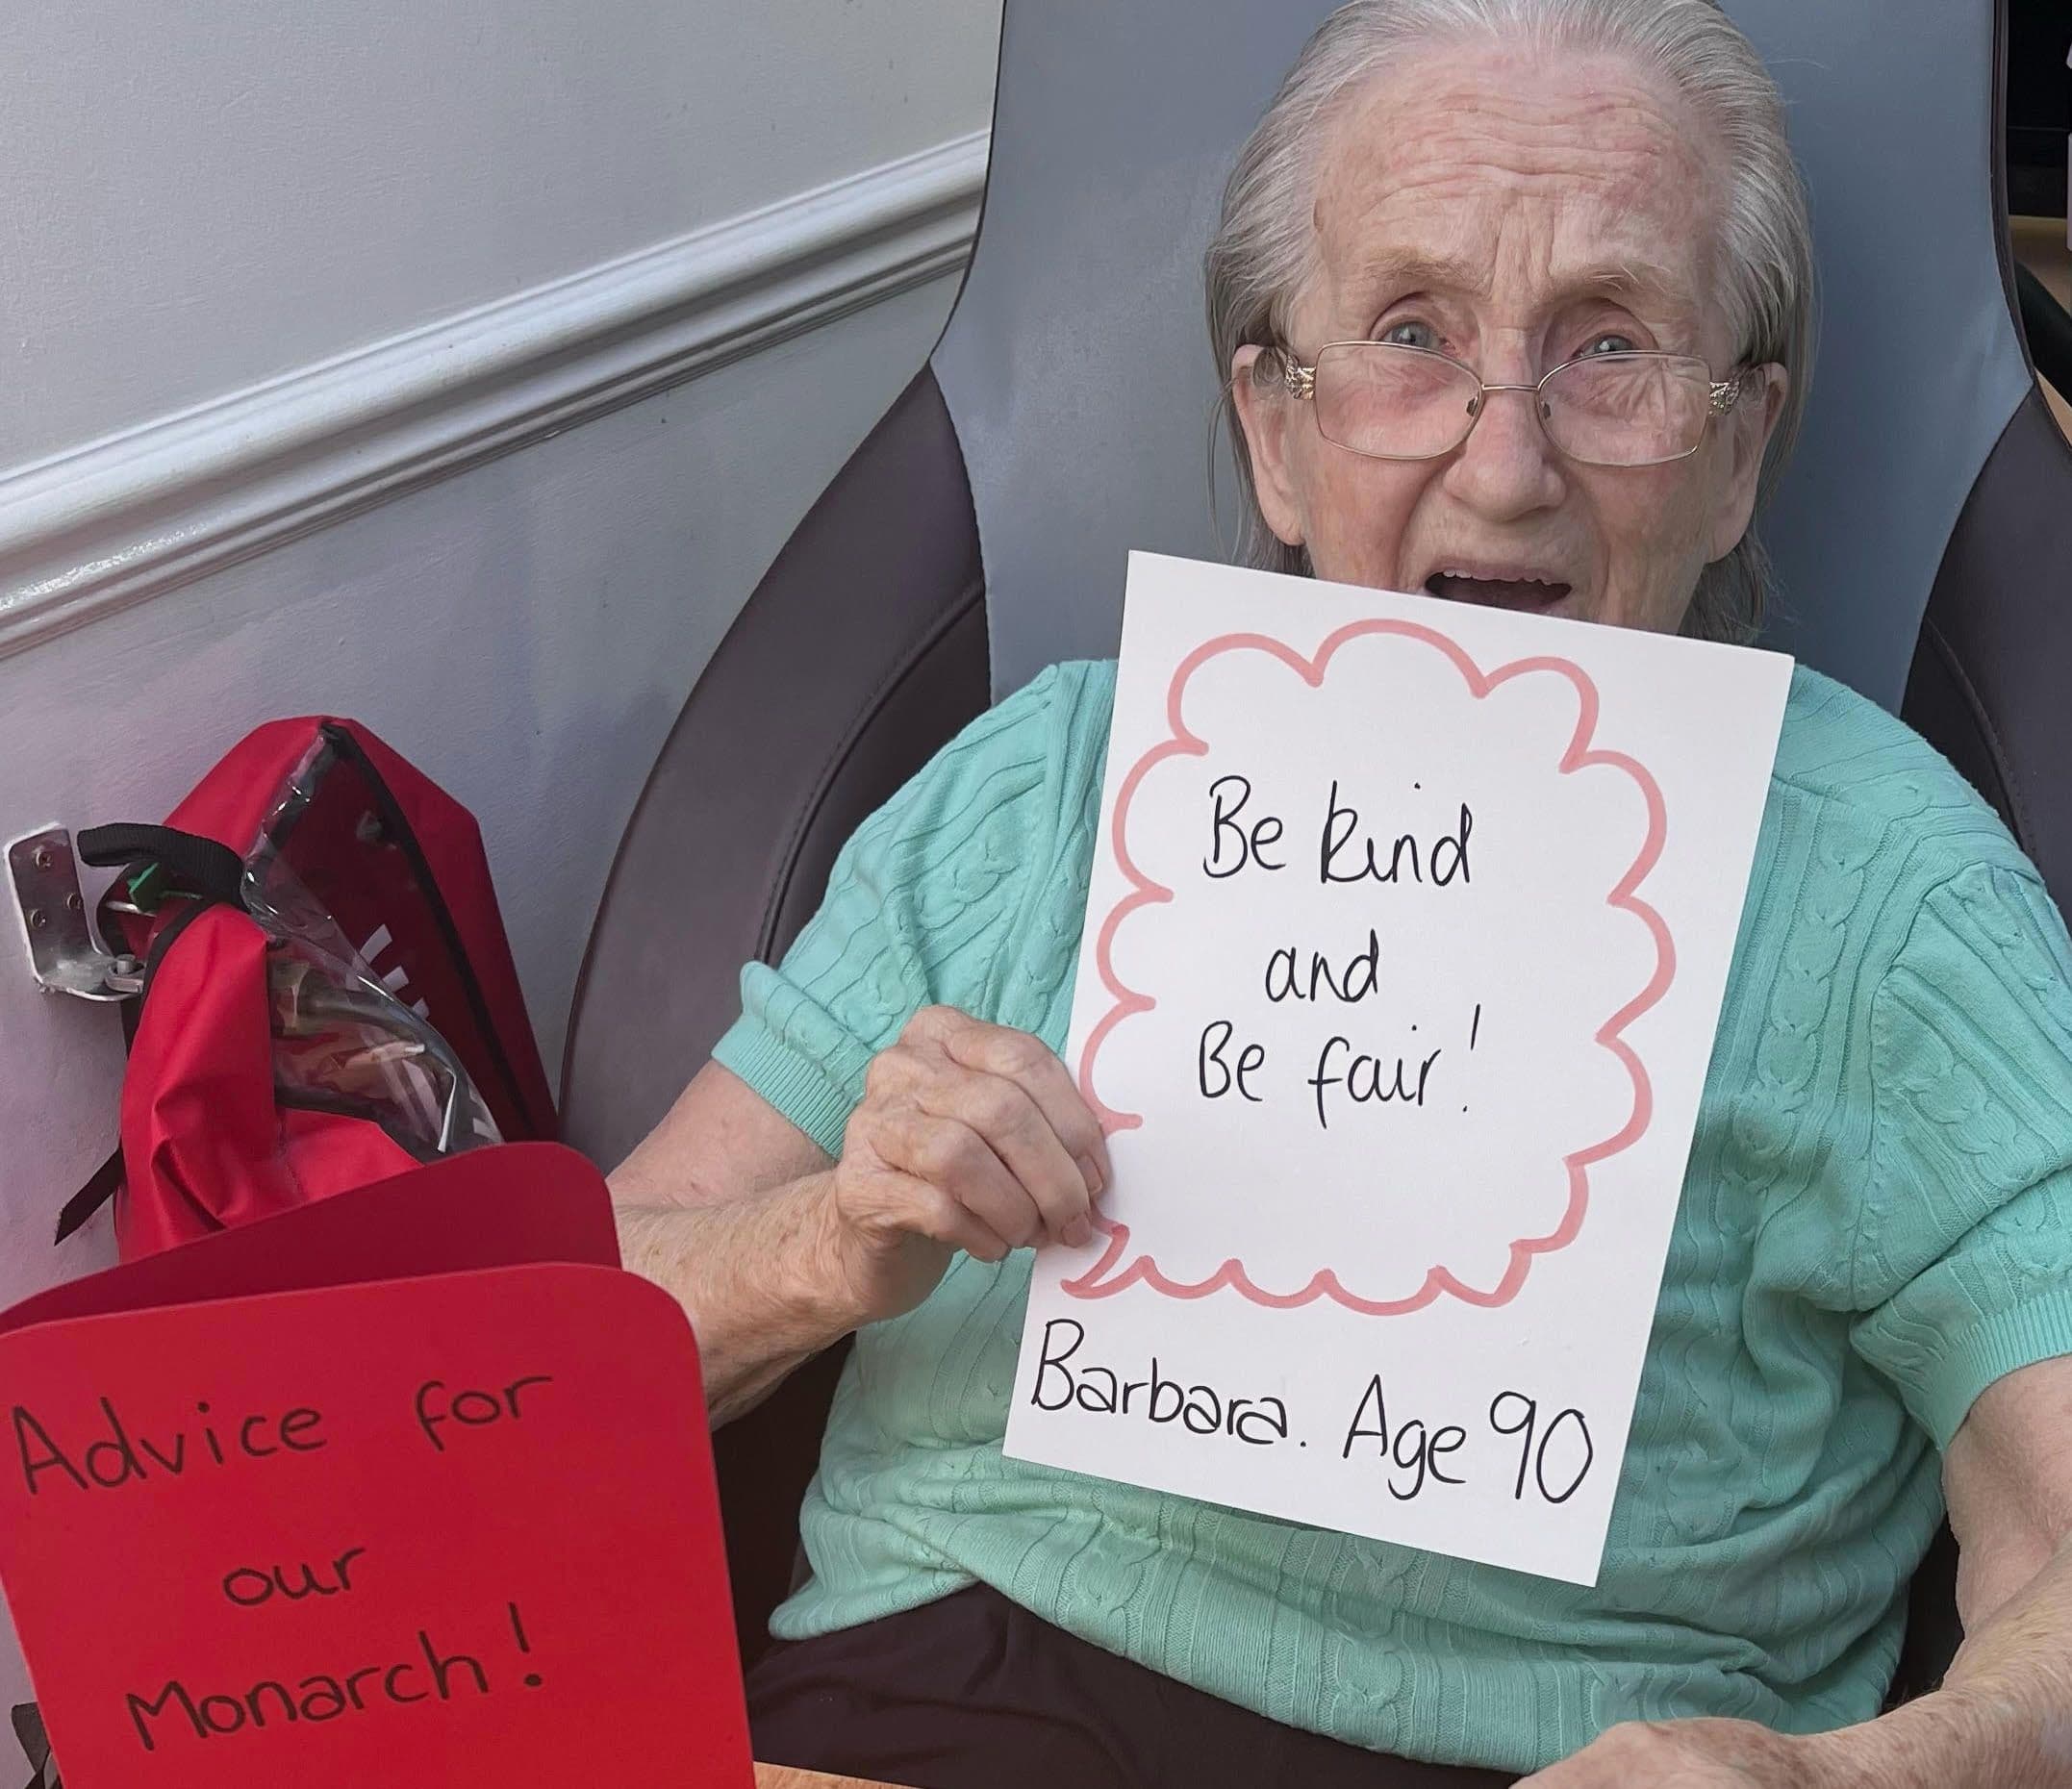 Be kind
and
Be fair!
Barbara. Age 90
Advice for
our
Monarch!